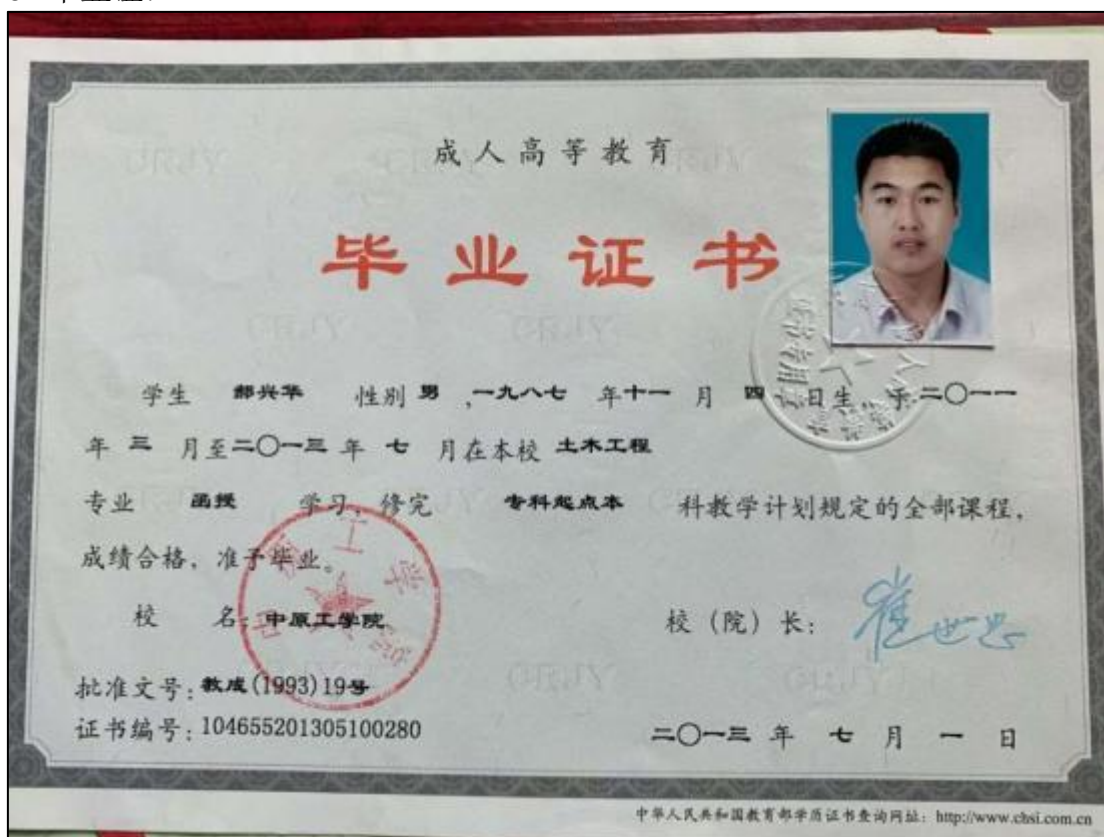 成人高等教育
毕业证书
学生 郝兴华 性别 男 ,一九八七 年十一 月 四 日生,于二〇一一
年 三 月至二〇一三 年 七 月在本校 土木工程
专业 函授 学习,修完 专科起点本 科教学计划规定的全部课程,
成绩合格,准予毕业。
校 名:中原工学院
校(院)长:崔世忠
批准文号:教成(1993)19号
证书编号:104655201305100280
二〇一三 年 七 月 一 日
中华人民共和国教育部学历证书查询网址:http://www.chsi.com.cn